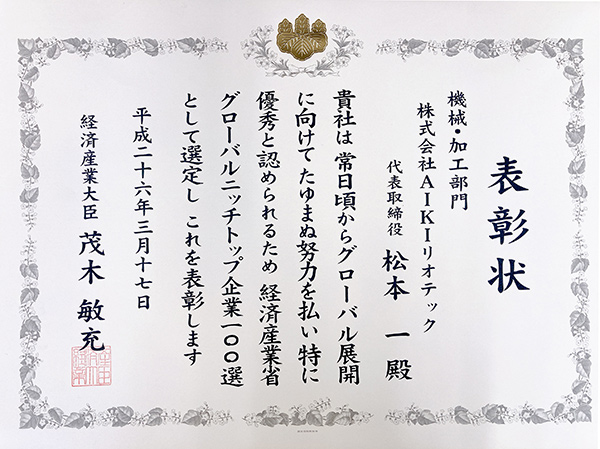 表彰状
機械・加工部門
株式会社AIKIリオテック
代表取締役 松本 一 殿
貴社は 常日頃からグローバル展開
に向けて たゆまぬ努力を払い 特に
優秀と認められるため 経済産業省
グローバルニッチトップ企業一〇〇選
として選定し これを表彰します
平成二十六年三月十七日
経済産業大臣 茂木 敏充